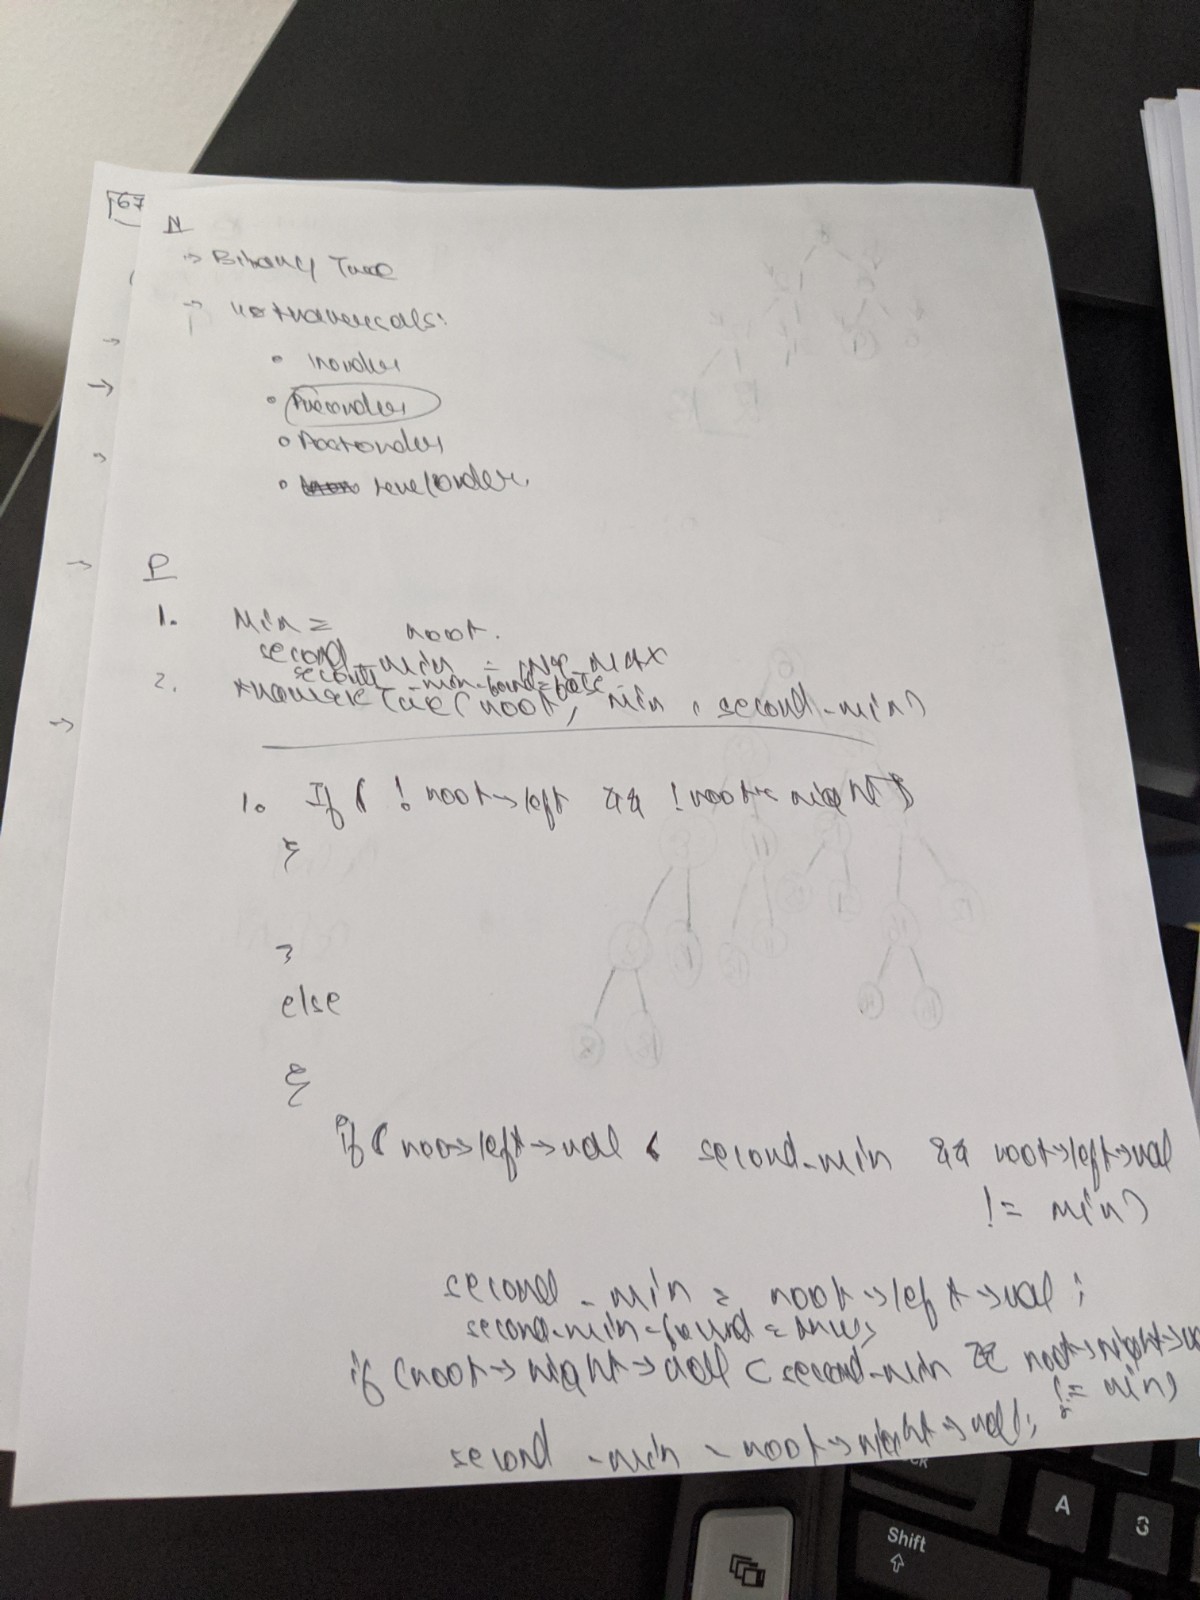 67
N
→ Binary Tree
→ 4 traversals:
• Inorder
• Preorder
• Postorder
• levelorder.
P
1. Min = root.
second_min = INT_MAX
second_min_found = false
2. traverseTree(root, min, second_min)
1. If ( ! root→left && !root→right)
{
}
else
{
if (root→left→val < second_min && root→left→val
!= min)
second_min = root→left→val ;
second_min_found = true;
if (root→right→val < second_min && root→right→va
!= min)
second_min = root→right→val;
A
S
Shift